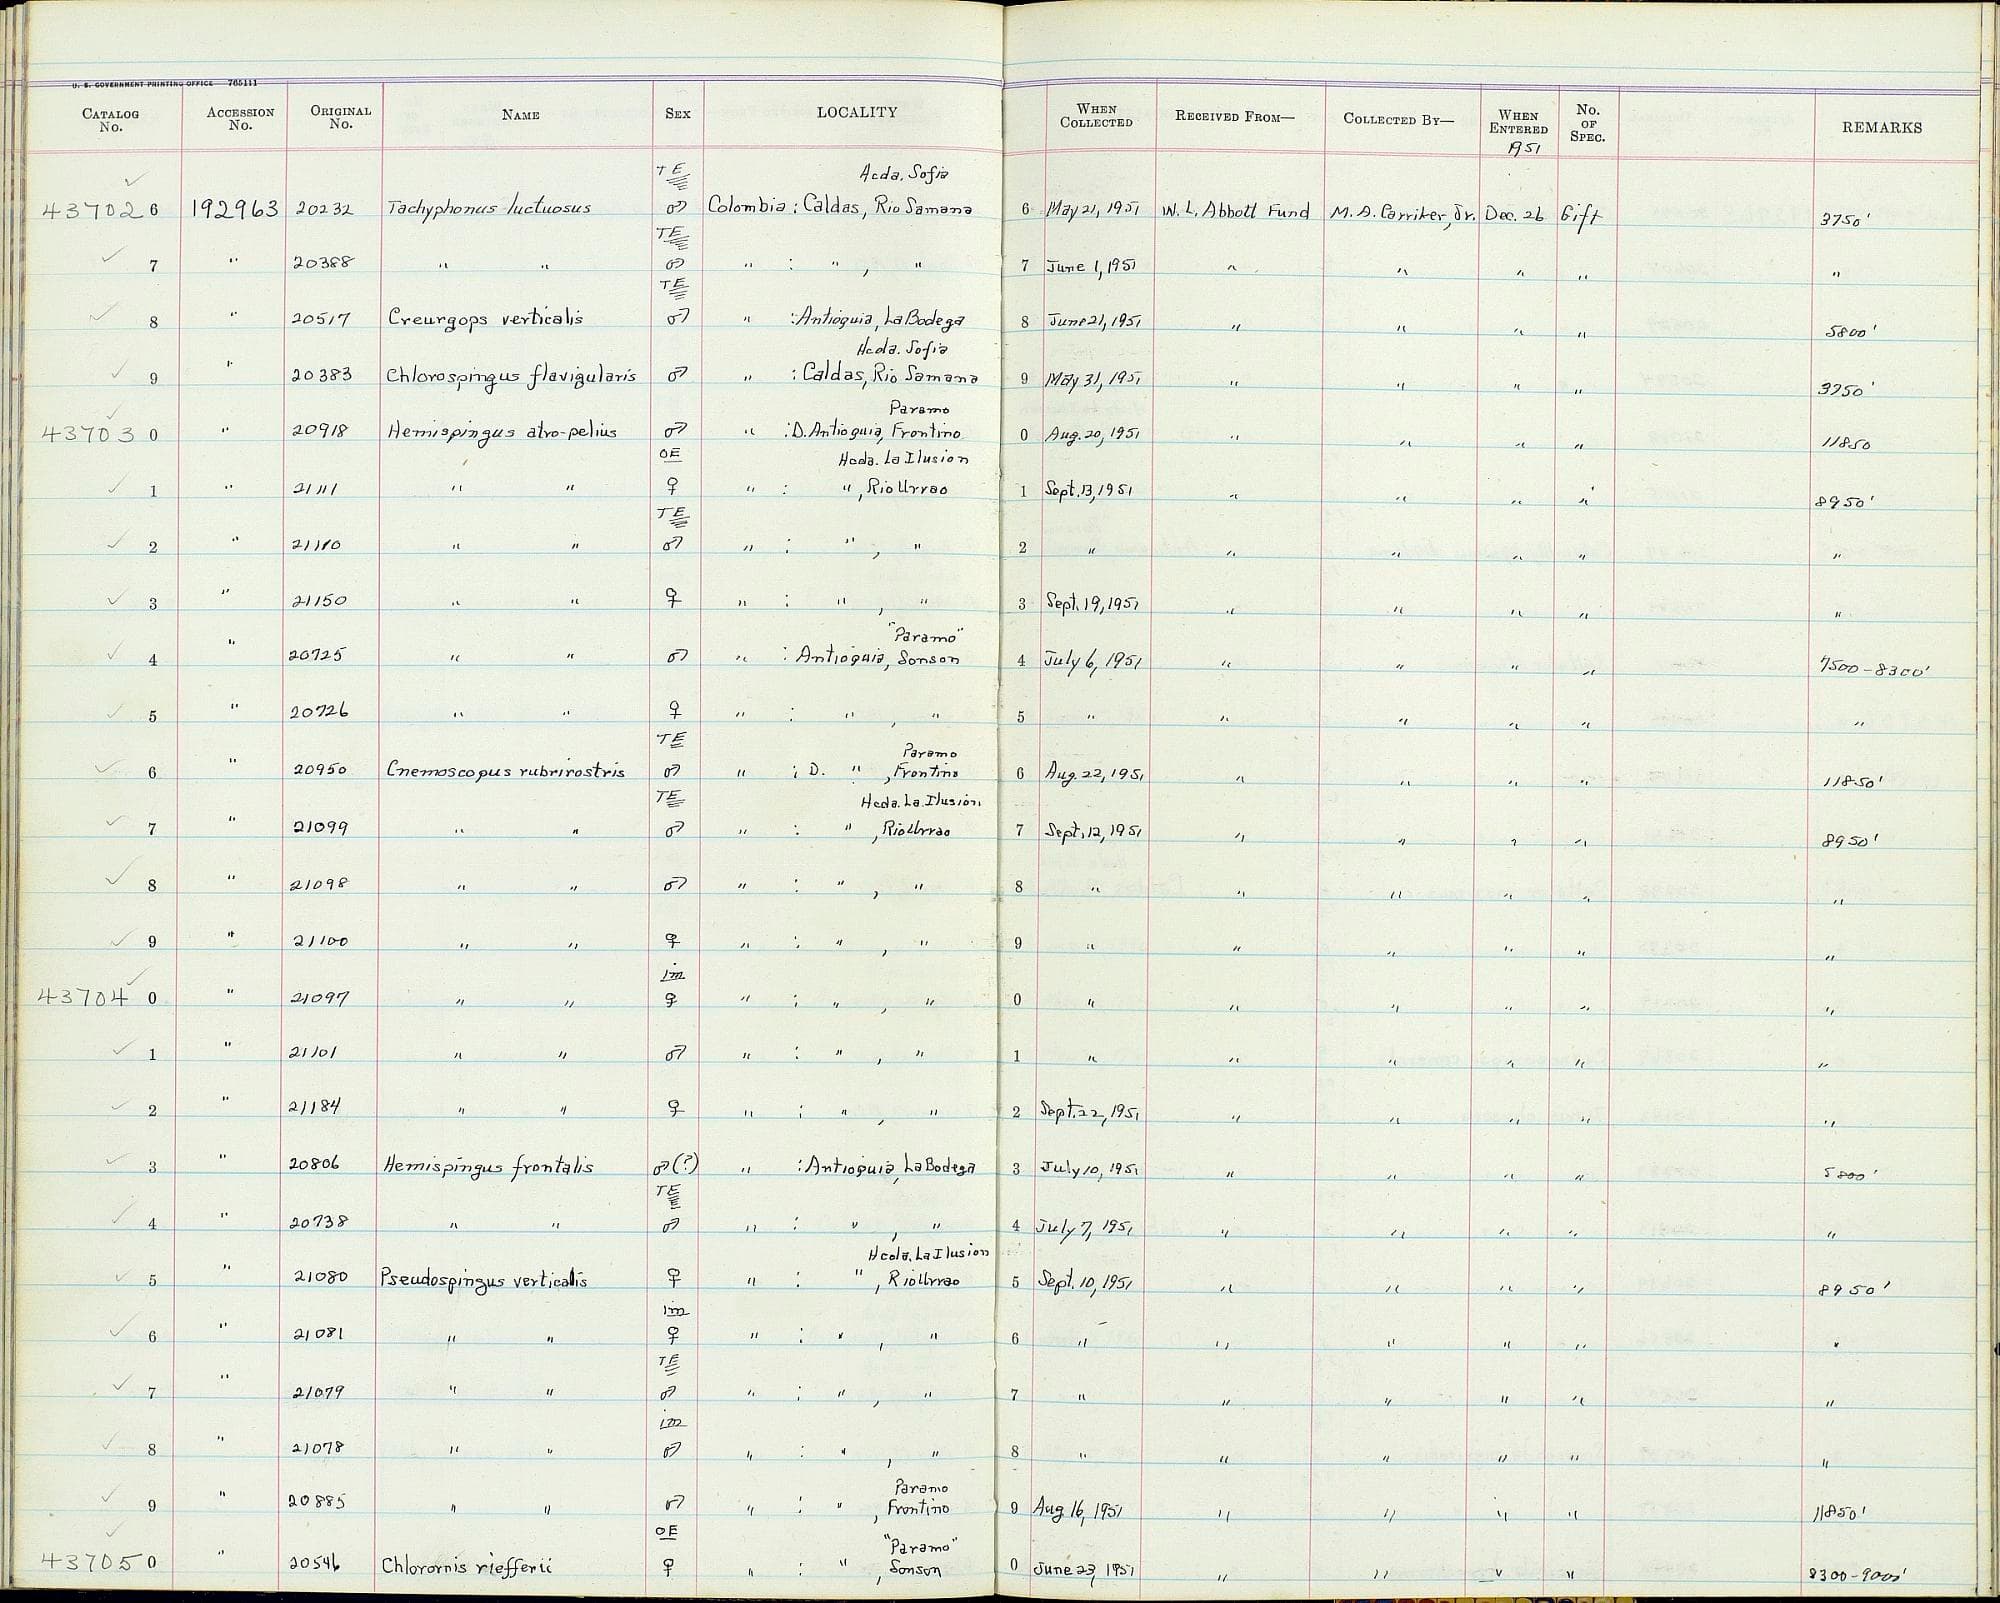 U. S. GOVERNMENT PRINTING OFFICE 765111
CATALOG No. ACCESSION No. ORIGINAL No. NAME SEX LOCALITY WHEN COLLECTED RECEIVED FROM— COLLECTED BY— WHEN ENTERED 1951 No. OF SPEC. REMARKS
TE Hcda. Sofia
437026 192963 20232 Tachyphonus luctuosus ♂ Colombia : Caldas, Rio Samana 6 May 21, 1951 W. L. Abbott Fund M. A. Carriker, Jr. Dec. 26 Gift 3750'
TE
7 " 20388 " " ♂ " : " , " 7 June 1, 1951 " " " " "
TE
8 " 20517 Creurgops verticalis ♂ " : Antioquia, La Bodega 8 June 21, 1951 " " " " 5800'
Hcda. Sofia
9 " 20383 Chlorospingus flavigularis ♂ " : Caldas, Rio Samana 9 May 31, 1951 " " " " 3750'
Paramo
437030 " 20918 Hemispingus atro-pelius ♂ " : D. Antioquia, Frontino 0 Aug. 20, 1951 " " " " 11850
OE Hcda. La Ilusion
1 " 21111 " " ♀ " : " , Rio Urrao 1 Sept. 13, 1951 " " " " 8950'
TE
2 " 21110 " " ♂ " : " , " 2 " " " " " "
3 " 21150 " " ♀ " : " , " 3 Sept. 19, 1951 " " " " "
"Paramo"
4 " 20725 " " ♂ " : Antioquia, Sonson 4 July 6, 1951 " " " " 7500-8300'
5 " 20726 " " ♀ " : " , " 5 " " " " " "
TE Paramo
6 " 20950 Cnemoscopus rubrirostris ♂ " : D. " , Frontino 6 Aug. 22, 1951 " " " " 11850'
TE Hcda. La Ilusion
7 " 21099 " " ♂ " : " , Rio Urrao 7 Sept. 12, 1951 " " " " 8950'
8 " 21098 " " ♂ " : " , " 8 " " " " " "
9 " 21100 " " ♀ " : " , " 9 " " " " " "
im
437040 " 21097 " " ♀ " : " , " 0 " " " " " "
1 " 21101 " " ♂ " : " , " 1 " " " " " "
2 " 21184 " " ♀ " : " , " 2 Sept. 22, 1951 " " " " "
3 " 20806 Hemispingus frontalis ♂(?) " : Antioquia, La Bodega 3 July 10, 1951 " " " " 5800'
TE
4 " 20738 " " ♂ " : " , " 4 July 7, 1951 " " " " "
Hcda. La Ilusion
5 " 21080 Pseudospingus verticalis ♀ " : " , Rio Urrao 5 Sept. 10, 1951 " " " " 8950'
im
6 " 21081 " " ♀ " : " , " 6 " " " " " "
TE
7 " 21079 " " ♂ " : " , " 7 " " " " " "
im
8 " 21078 " " ♂ " : " , " 8 " " " " " "
Paramo
9 " 20885 " " ♂ " : " , Frontino 9 Aug 16, 1951 " " " " 11850'
OE "Paramo"
437050 " 20546 Chlorornis riefferii ♀ " : " , Sonson 0 June 23, 1951 " " " " 8300-9000'